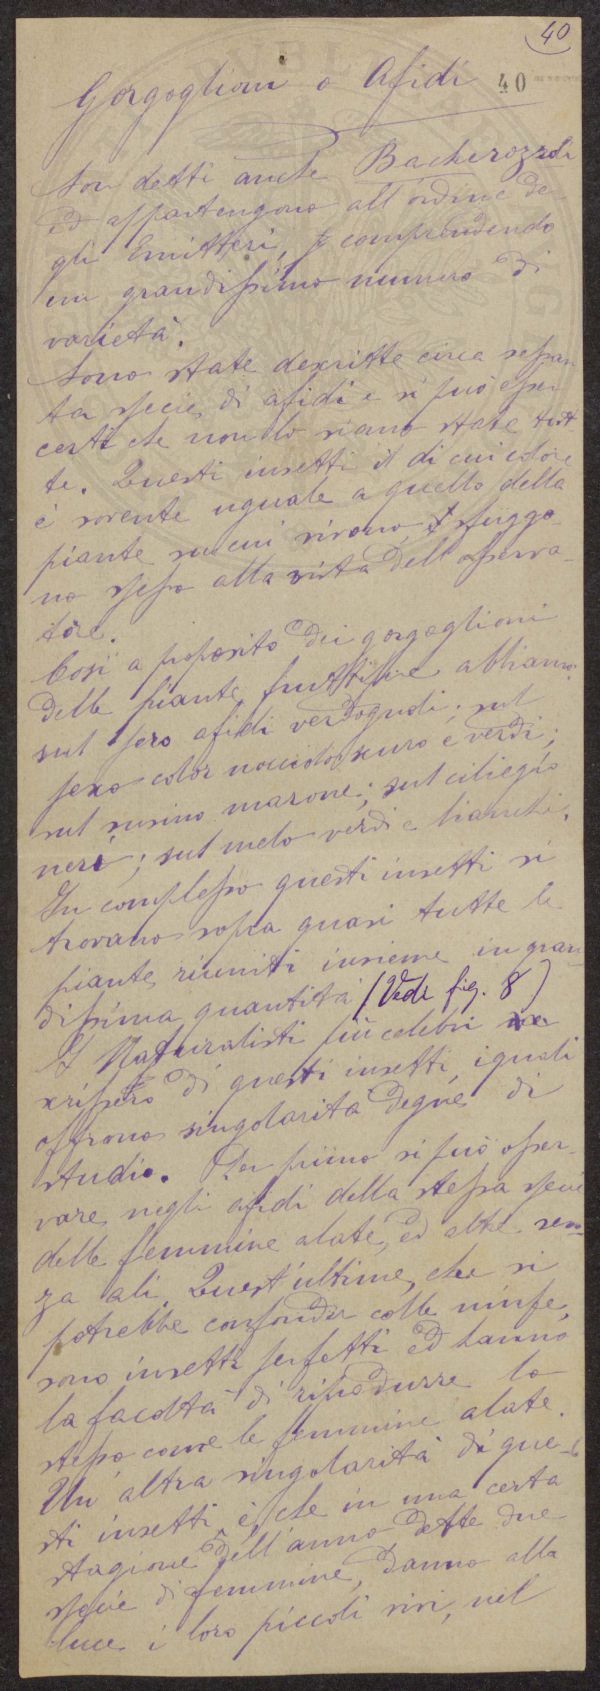 40
40
Gorgoglioni o Afidi
Son detti anche Bacherozzoli
ed appartengono all'ordine de-
gli Emitteri, comprendendo
un grandissimo numero di
varietà.
Sono state descritte circa sessan
ta specie di afidi e si può esser
certi che non lo siano state tut
te. Questi insetti il di cui colore
è sovente uguale a quello della
piante su cui vivono, sfuggo
no spesso alla vista dell'osserva-
tore.
Così a proposito dei gorgoglioni
delle piante fruttifere abbiamo:
sul pero afidi verdognoli; sul
pesco color nocciola scuro e verdi;
sul susino marone; sul ciliegio
neri; sul melo verdi e bianchi.
In complesso questi insetti si
trovano sopra quasi tutte le
piante, riuniti insieme in gran
dissima quantità (Vedi fig. 8)
I Naturalisti più celebri
scrissero di questi insetti, i quali
offrono singolarità degne di
studio. Per primo si può osser-
vare negli afidi della stessa specie
delle femmine alate, ed altre sen-
za ali. Quest'ultime, che si
potrebbe confonder colle ninfe,
sono insetti perfetti ed hanno
la facoltà di riprodurre lo
stesso come le femmine alate.
Un'altra singolarità di que-
sti insetti è, che in una certa
stagione dell'anno dette due
specie di femmine, danno alla
luce i loro piccoli vivi, nel